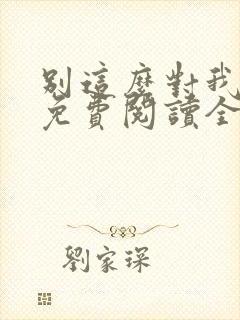 別這麼對我
免費閱讀全
劉家琛